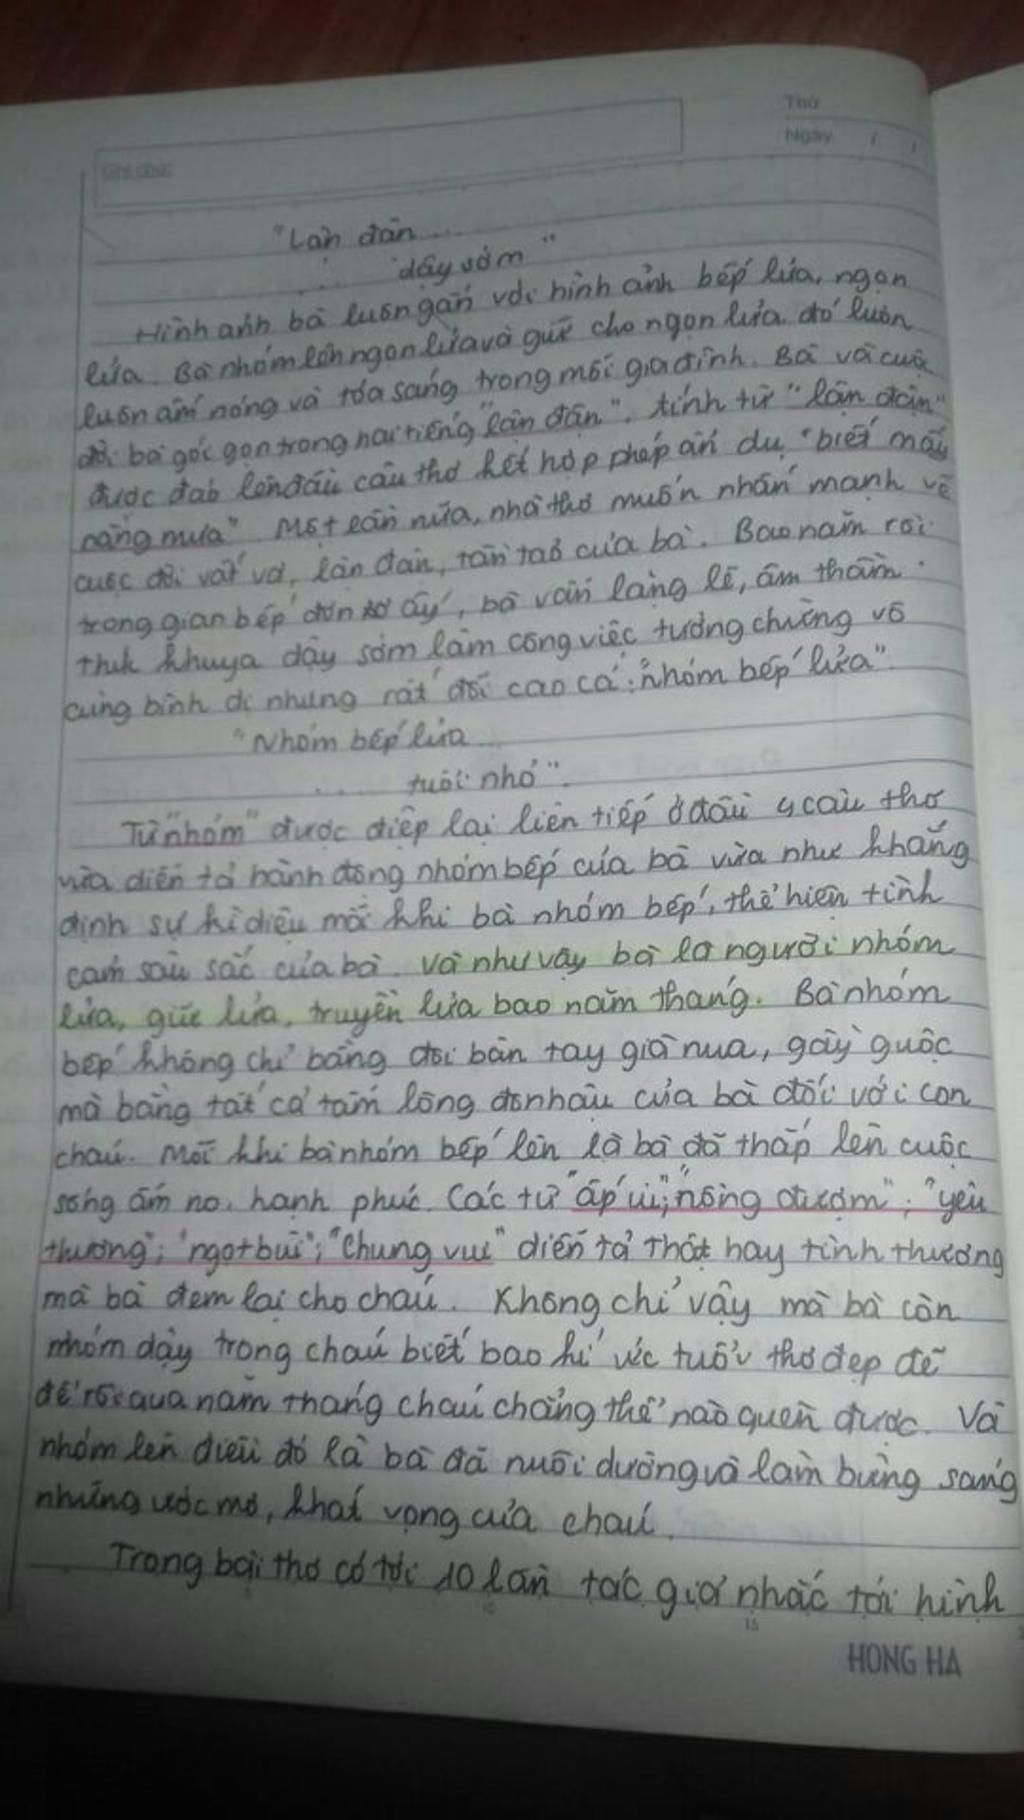 Thứ
Ngày / /
Ghi chú:
"Lận đận ...
... dậy sớm"
Hình ảnh bà luôn gắn với hình ảnh bếp lửa, ngọn
lửa. Bà nhóm lên ngọn lửa và giữ cho ngọn lửa đó luôn
luôn ấm nóng và tỏa sáng trong mỗi gia đình. Bà và cuộc
đời bà gói gọn trong hai tiếng "lận đận". tính từ "lận đận"
được đảo lên đầu câu thơ kết hợp phép ẩn dụ "biết mấy
nắng mưa" Một lần nữa, nhà thơ muốn nhấn mạnh về
cuộc đời vất vả, lận đận, tần tảo của bà. Bao năm rồi
trong gian bếp đơn sơ ấy, bà vẫn lặng lẽ, âm thầm
thức khuya dậy sớm làm công việc tưởng chừng vô
cùng bình dị nhưng rất đỗi cao cả: "nhóm bếp lửa".
"Nhóm bếp lửa ...
.... tuổi nhỏ".
Từ "nhóm" được điệp lại liên tiếp ở đầu 4 câu thơ
vừa diễn tả hành động nhóm bếp của bà vừa như khẳng
định sự kì diệu mỗi khi bà nhóm bếp, thể hiện tình
cảm sâu sắc của bà. Và như vậy bà là người nhóm
lửa, giữ lửa, truyền lửa bao năm tháng. Bà nhóm
bếp không chỉ bằng đôi bàn tay già nua, gầy guộc
mà bằng tất cả tấm lòng đôn hậu của bà đối với con
cháu. Mỗi khi bà nhóm bếp lên là bà đã thắp lên cuộc
sống ấm no, hạnh phúc. Các từ "ấp iu"; "nồng đượm"; "yêu
thương"; "ngọt bùi"; "Chung vui" diễn tả thật hay tình thương
mà bà đem lại cho cháu. Không chỉ vậy mà bà còn
nhóm dậy trong cháu biết bao kí ức tuổi thơ đẹp đẽ
để rồi qua năm tháng cháu chẳng thể nào quên được. Và
nhóm lên điều đó là bà đã nuôi dưỡng và làm bừng sáng
những ước mơ, khát vọng của cháu.
Trong bài thơ có tới 10 lần tác giả nhắc tới hình
15
HONG HA